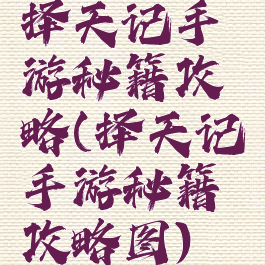 择天记手
游秘籍攻
略(择天记
手游秘籍
攻略图)